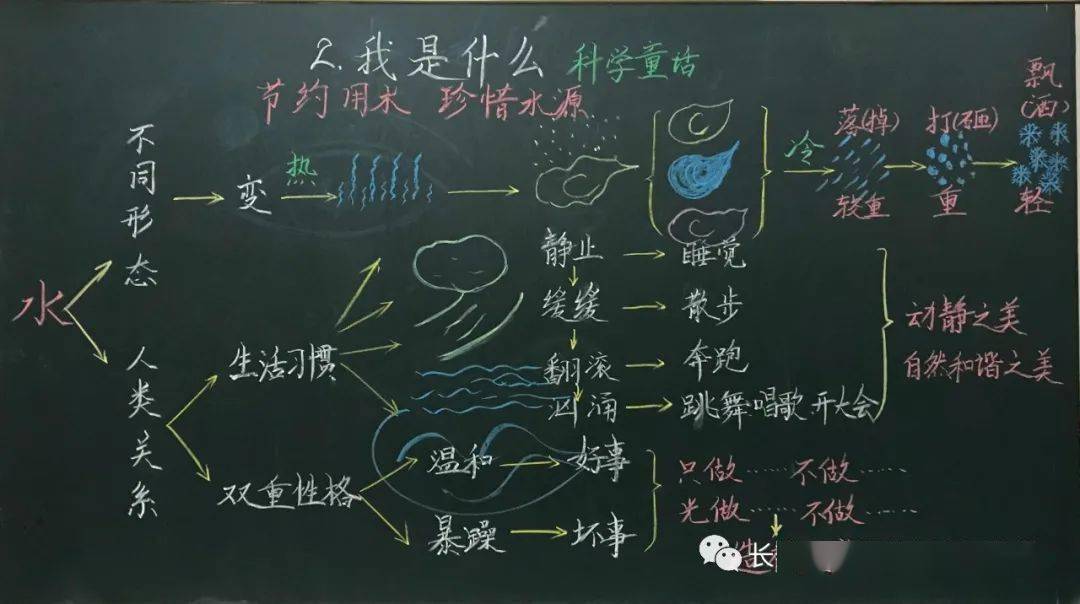 2.我是什么 科学童话
节约用水 珍惜水源
水
不同形态
变
热
冷
落(掉)
较重
打(砸)
重
飘(洒)
轻
人类关系
生活习惯
静止
睡觉
缓缓
散步
翻滚
奔跑
汹涌
跳舞唱歌开大会
动静之美
自然和谐之美
双重性格
温和
好事
暴躁
坏事
只做……不做……
光做……不做……
造
长